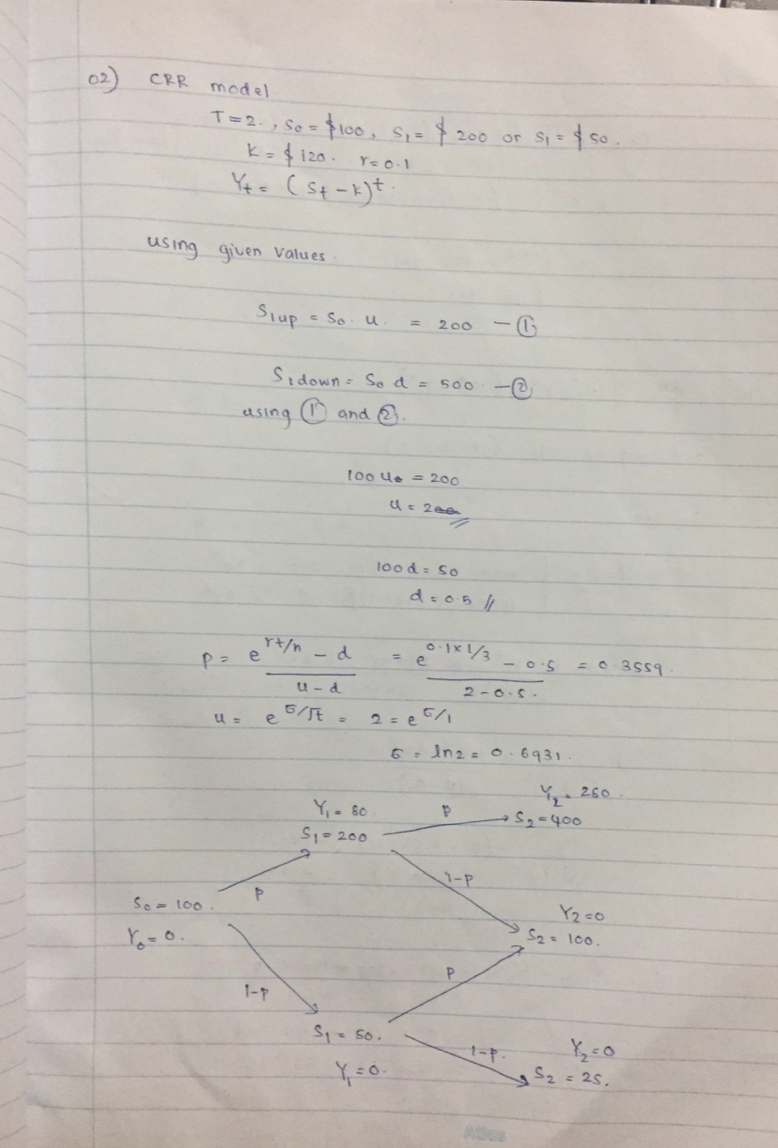 02) CRR model
T=2. , S0 = $100, S1 = $ 200 or S1 = $ 50.
K = $ 120. r=0.1
Yt = (St - K)t.
using given values.
S1up = S0. u. = 200 - ①
S1down = S0 d = 500 - ②
using ① and ②.
100 u = 200
u = 2
100d = 50
d = 0.5 //
P = e^rt/n - d / u - d = e^0.1x1/3 - 0.5 / 2 - 0.5. = 0.3559.
u = e^σ/√t = 2 = e^σ/1
σ = ln2 = 0.6931
Y1 = 80 P Y2 = 280.
S1 = 200 S2 = 400
P 1-P
S0 = 100. Y2 = 0
Y0 = 0. S2 = 100.
1-P P
S1 = 50. 1-P. Y2 = 0
Y1 = 0. S2 = 25.